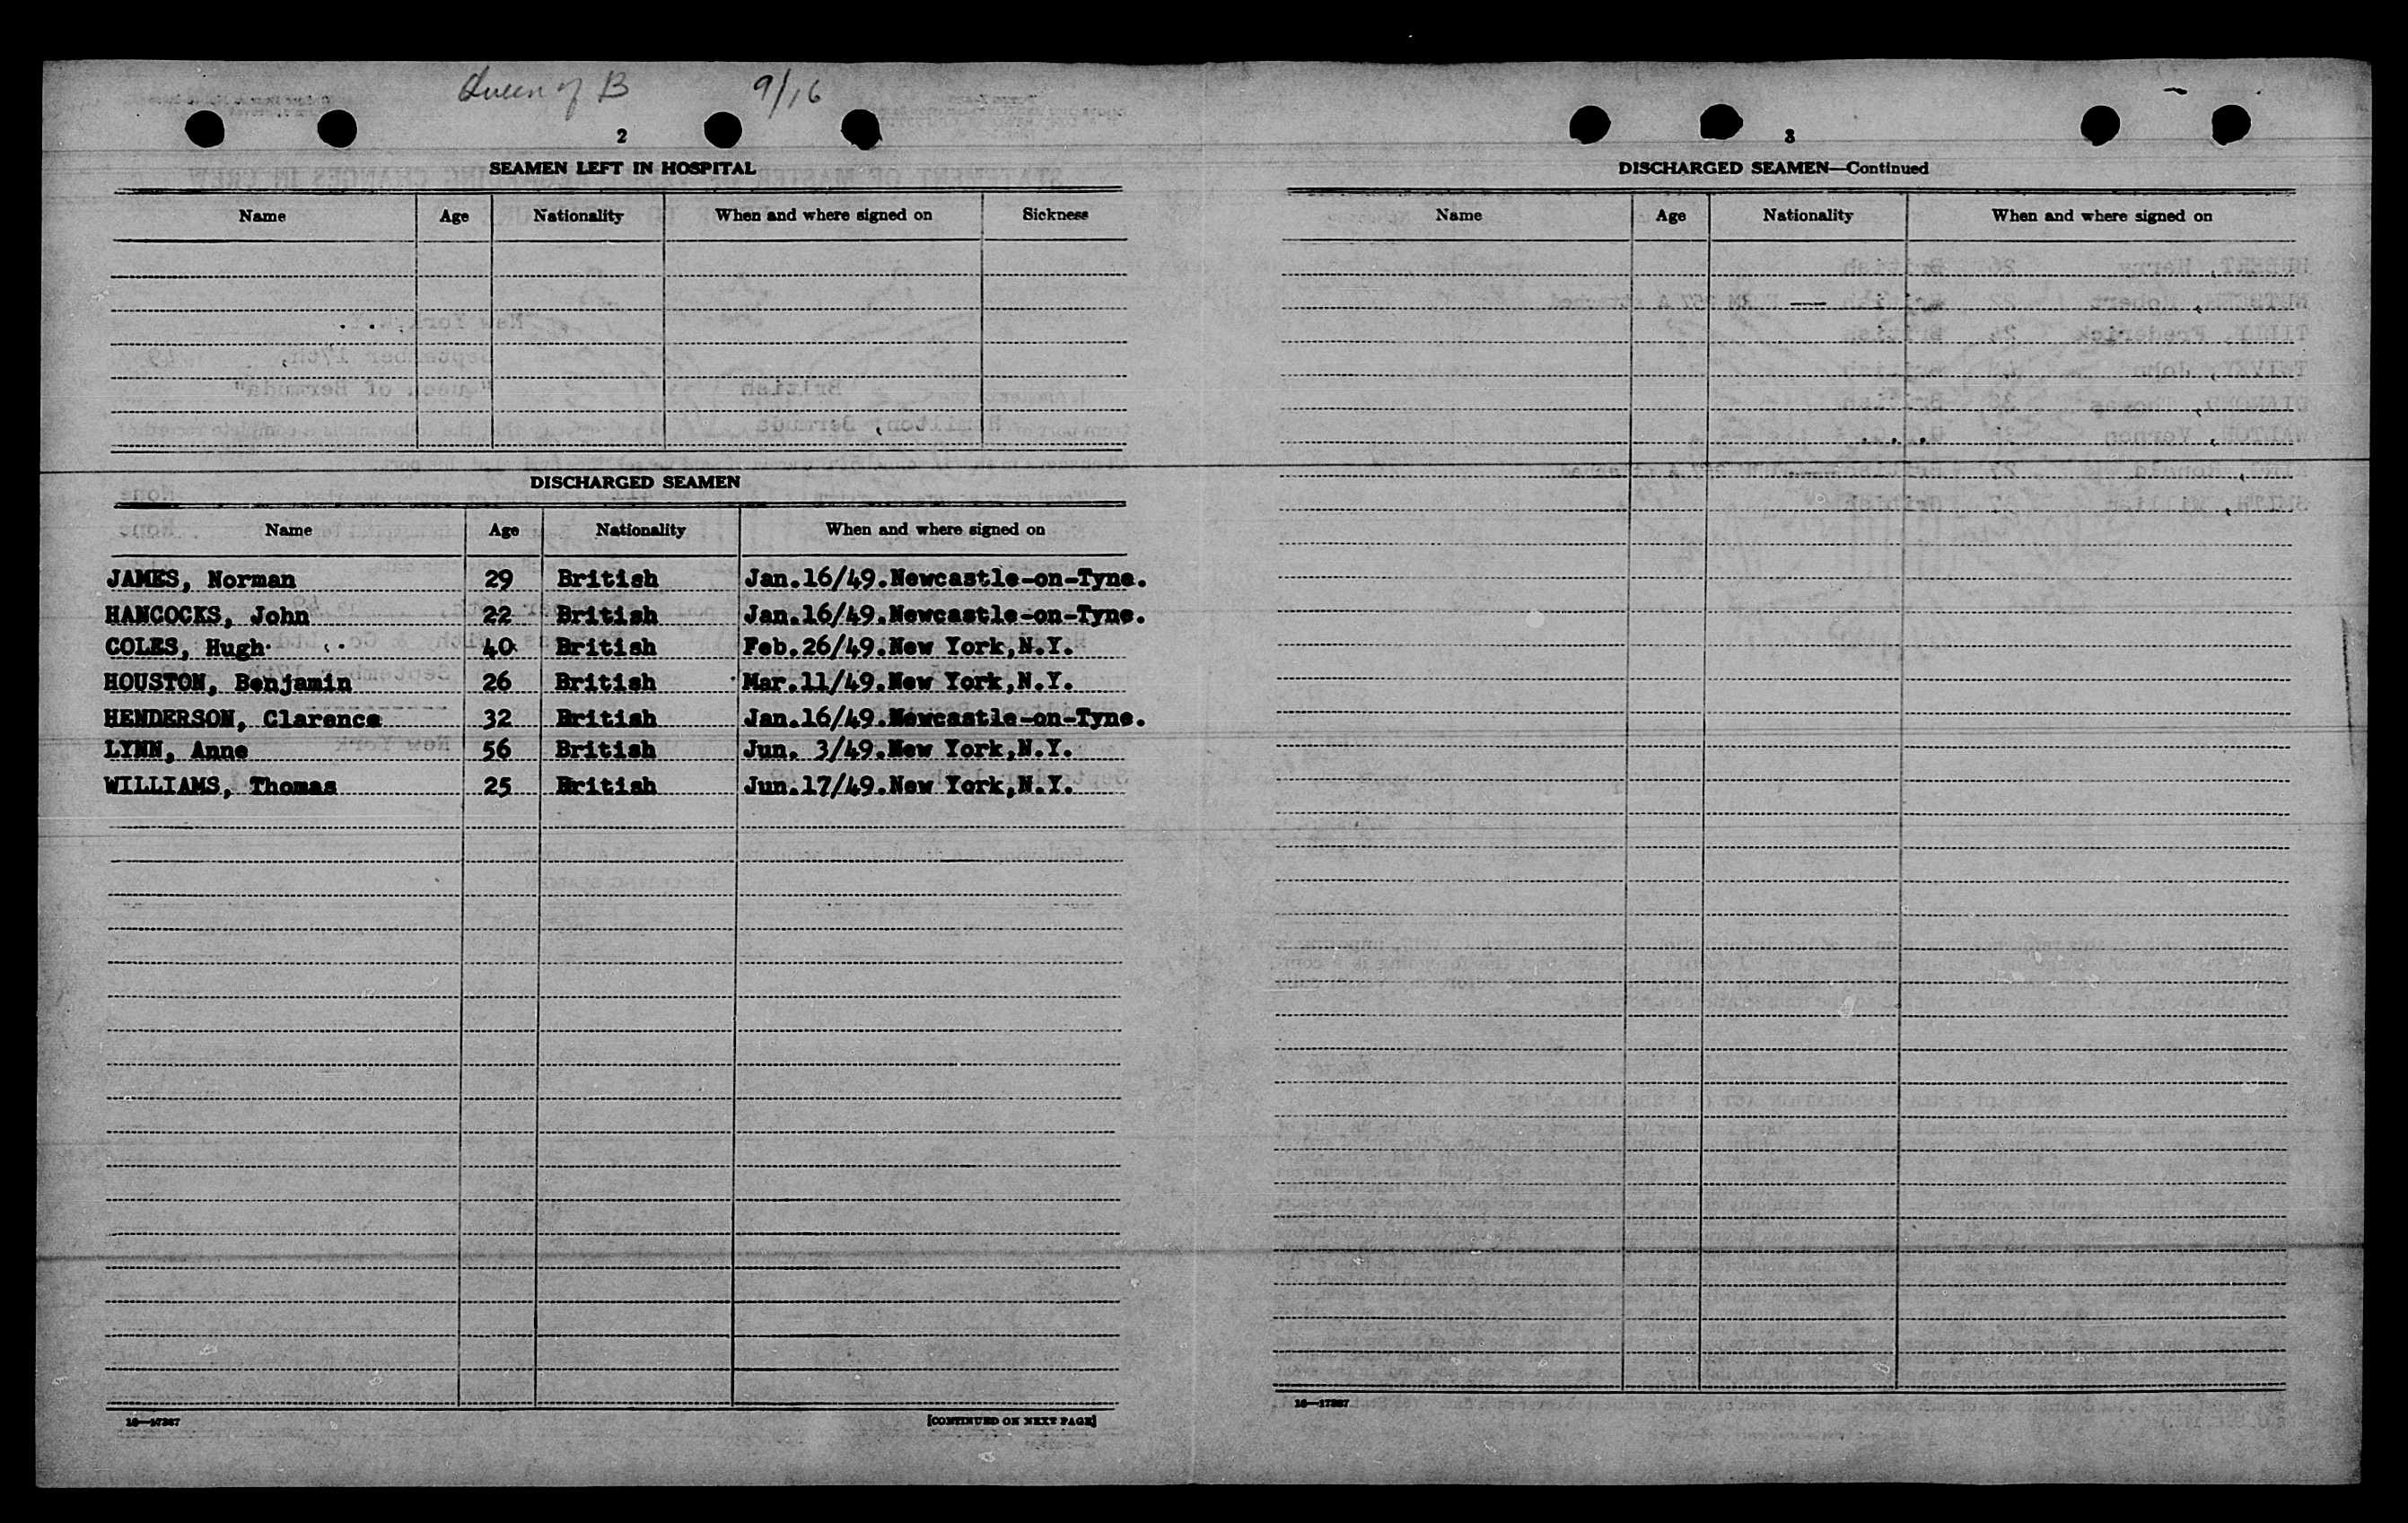 Queen of B 9/16
2
SEAMEN LEFT IN HOSPITAL
Name Age Nationality When and where signed on Sickness
DISCHARGED SEAMEN
Name Age Nationality When and where signed on
JAMES, Norman 29 British Jan.16/49.Newcastle-on-Tyne.
HANCOCKS, John 22 British Jan.16/49.Newcastle-on-Tyne.
COLES, Hugh 40 British Feb.26/49.New York,N.Y.
HOUSTON, Benjamin 26 British Mar.11/49.New York,N.Y.
HENDERSON, Clarence 32 British Jan.16/49.Newcastle-on-Tyne.
LYNN, Anne 56 British Jun. 3/49.New York,N.Y.
WILLIAMS, Thomas 25 British Jun.17/49.New York,N.Y.
16—17367
[CONTINUED ON NEXT PAGE]
3
DISCHARGED SEAMEN—Continued
Name Age Nationality When and where signed on
16—17367